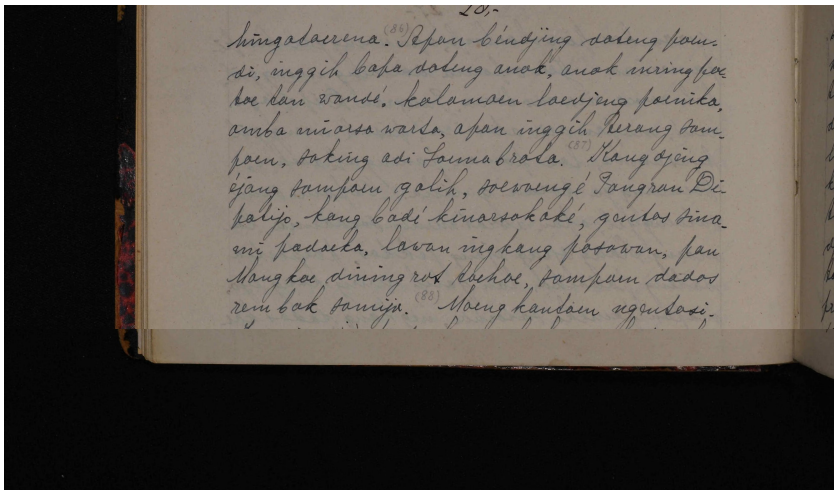 20,-
hingatoerena. (86) Apan béndjing dateng poen-
di, inggih bapa dateng anak, anak mring poe-
toe tan wandé, kalamoen loedjeng poenika,
amba miarsa warta, apan inggih terang sam-
poen, saking adi Soemabrata. (87) Kangdjeng
éjang sampoen galih, soewoengé Pangran Di-
patijo, kang badé kinarsakaké, gentos sina-
mi padaeka, lawan ingkang pasowan, pan
Mangkoe diningrat toehoe, sampoen dados
rembak samija. (88) Moeng kantoen ngentosi-